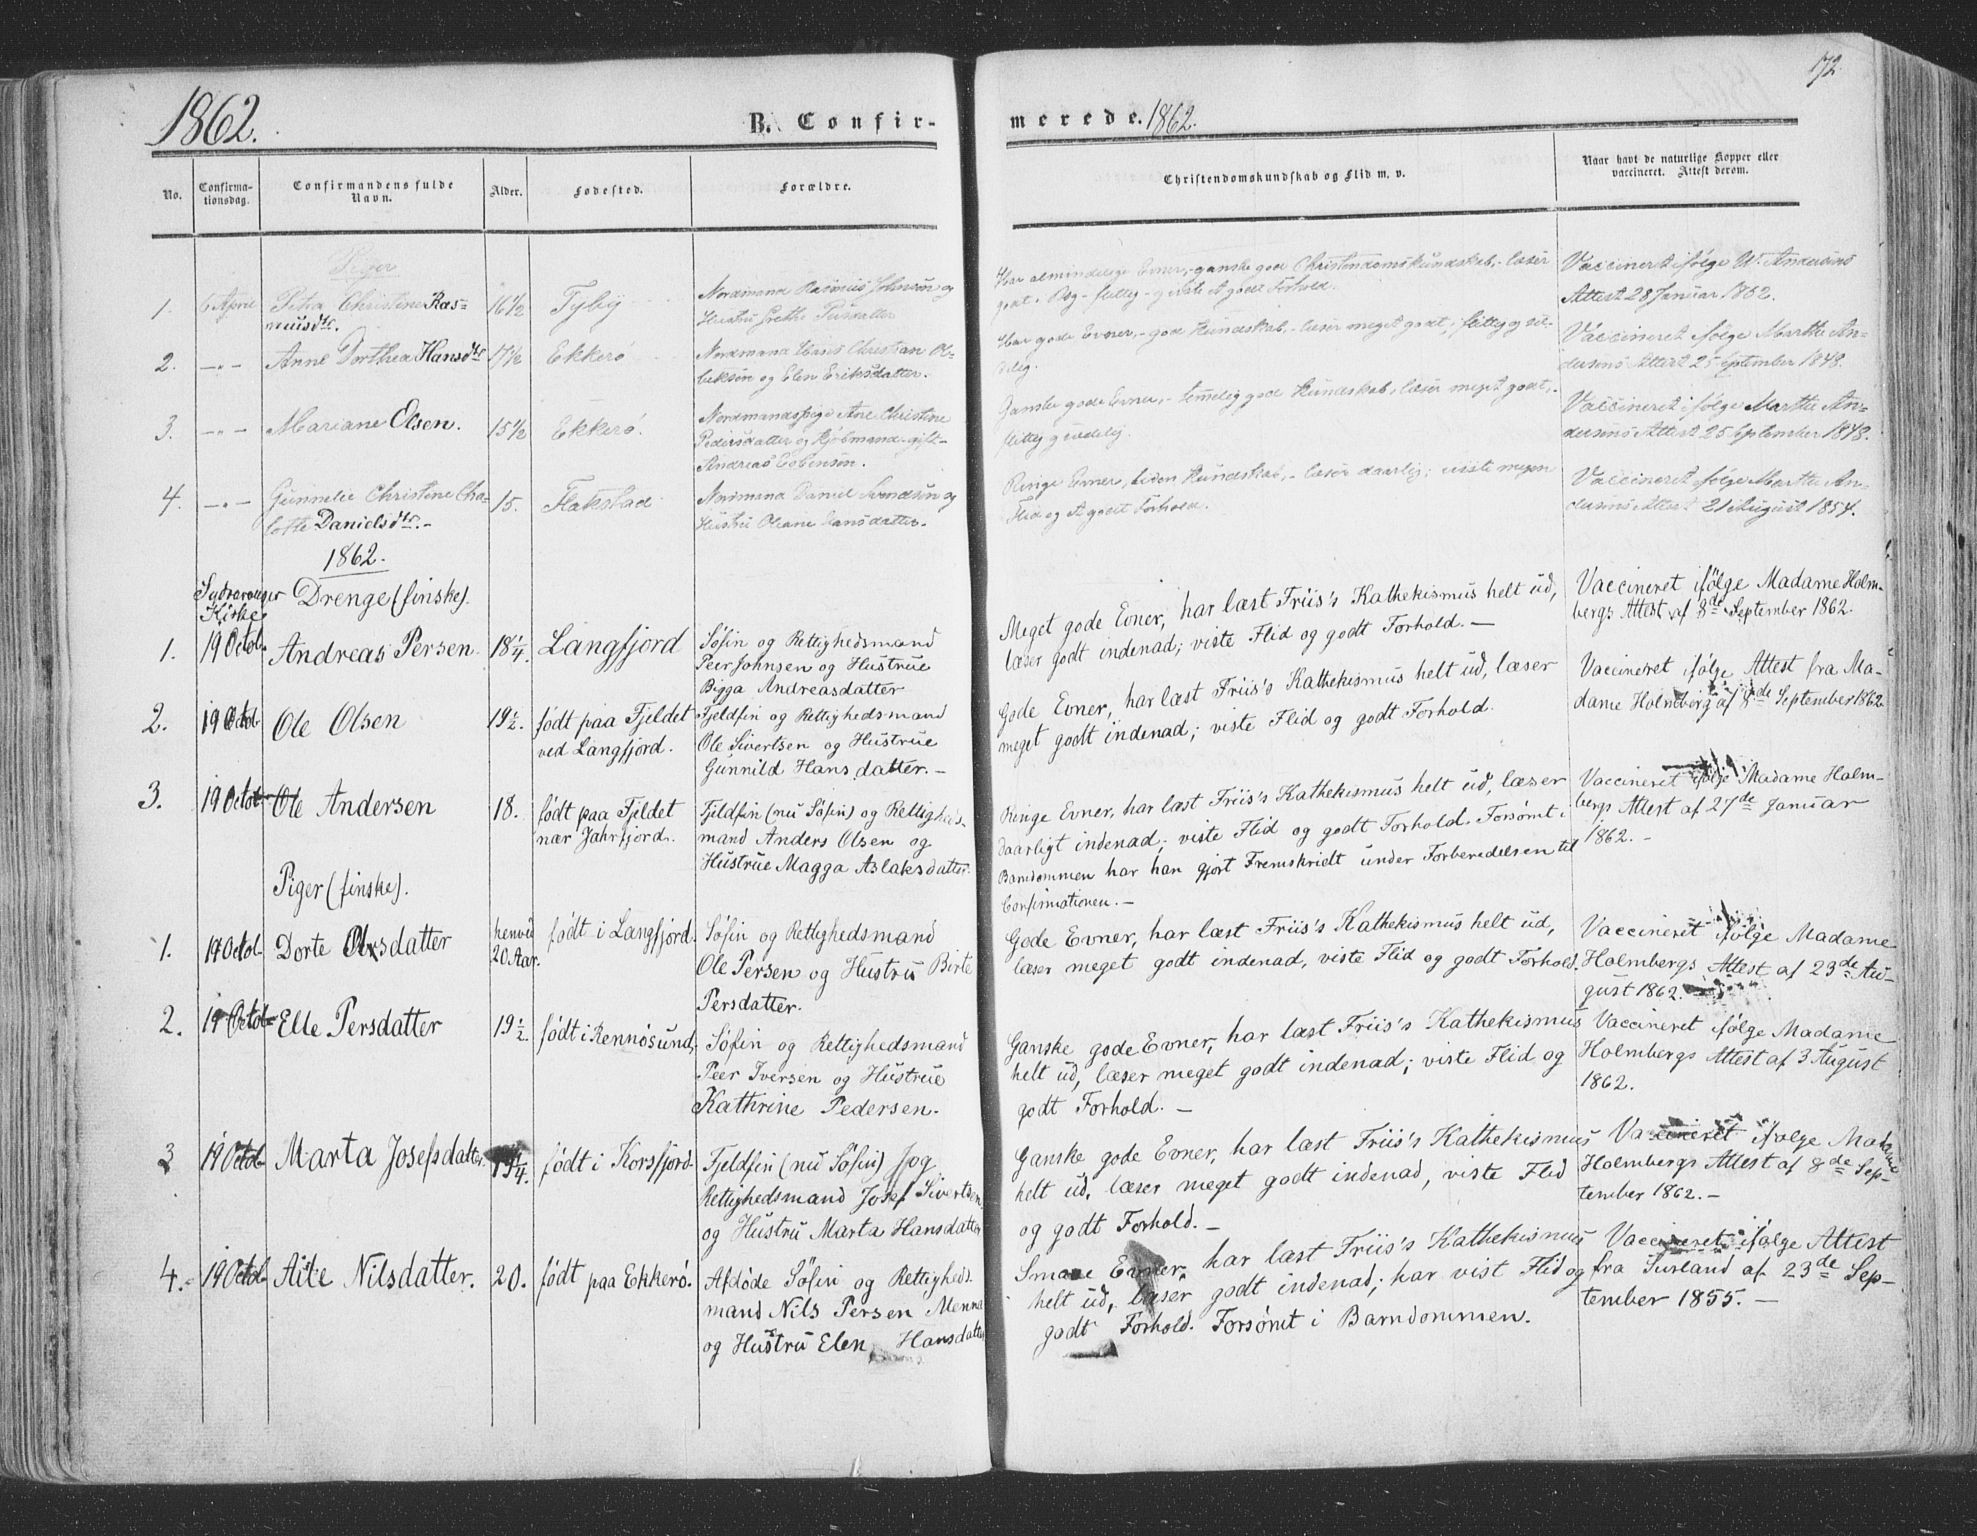 172
1862.
B. Confir-
merede. 1862.
No.
Confirma-
tionsdag.
Confirmandens fulde
Navn.
Alder.
Fødested.
Forældre.
Christendomskundskab og Flid m. v.
Naar havt de naturlige Kopper eller
vaccineret. Attest derom.
Piger
1. 6 April Petra Christine Ras-
musdtr. 16 1/2 Tyby Nordmand Rasmus Johnsen og
Hustru Grethe
Har almindelige Evner, - ganske god Christendomskundskab, - læser
godt i Bog - flittig - godt Forhold.
Vaccineret ifølge W. Andersens
Attest 28 Januar 1852.
2. -"- Anne Dorthea Hansdtr 17 1/2 Ekkerø Nordmand Hans Christian
og Elen Eriksdatter.
Har gode Evner, - god Kundskab, - læser meget godt, flittig og sæ-
delig.
Vaccineret ifølge Marthe An-
dersens Attest 25 September 1848.
3. -"- Mariane Olsen. 15 1/2 Ekkerø. Nordmandspige Ane Christine
Pedersdatter og Kjøbmand gift
Andreas Esbensen.
Ganske gode Evner, - temmelig god Kundskab, læser meget godt, -
flittig og sædelig.
Vaccineret ifølge Marthe An-
dersens Attest 25 September 1848.
4. -"- Gunnelie Christine Cha-
lotte Danielsdtr. - 15. Flakstad Nordmand Daniel Svendsen og
Hustru Oleane Hansdatter.
Ringe Evner, liden Kundskab, - læser daarlig; viste megen
Flid og et godt Forhold.
Vaccineret ifølge Marthe An-
dersens Attest 21 August 1854.
1862.
Sydvaranger
Kirke
Drenge (finske).
1. 19 Octob. Andreas Persen. 18 1/4. Langfjord Søfin og Rettighedsmand
Peer Johnsen og Hustrue
Bigga Andreasdatter
Meget gode Evner, har læst Friis's Kathekismus helt ud,
læser godt indenad; viste Flid og godt Forhold. -
Vaccineret ifølge Madame Holm-
bergs Attest af 8de September 1862.
2. 19 Octob. Ole Olsen 19 1/2. født paa Fjeldet
ved Langfjord. Fjeldfin og Rettighedsmand
Ole Sivertsen og Hustrue
Gunnild Hansdatter. -
Gode Evner, har læst Friis's Kathekismus helt ud, læser
meget godt indenad; viste Flid og godt Forhold.
Vaccineret ifølge Attest fra Ma-
dame Holmberg af 8de September 1862.
3. 19 Octob. Ole Andersen 18. født paa Fjeldet
nær Jahrfjord. Fjeldfin (nu Søfin) og Rettigheds-
mand Anders Olsen og
Hustrue Magga Aslaksdatter.
Ringe Evner, har læst Friis's Kathekismus helt ud, læser
daarligt indenad; viste Flid og godt Forhold. Forsømt i
Barndommen har han gjort Fremskridt under Forberedelsen til
Confirmationen. -
Vaccineret ifølge Madame Holm-
bergs Attest af 27de Januar
1862. -
Piger (finske).
1. 19 Octob. Dorte Olsdatter henved
20 Aar. født i Langfjord. Søfin og Rettighedsmand
Ole Persen og Hustru Birte
Persdatter.
Gode Evner, har læst Friis's Kathekismus helt ud,
læser meget godt indenad, viste Flid og godt Forhold.
Vaccineret ifølge Madame
Holmbergs Attest af 23de Au-
gust 1862.
2. 19 Octob. Elle Persdatter 19 1/2. født i Rennøsund. Søfin og Rettighedsmand
Peer Iversen og Hustrue
Kathrine Pedersen.
Ganske gode Evner, har læst Friis's Kathekismus
helt ud, læser meget godt indenad; viste Flid og
godt Forhold. -
Vaccineret ifølge Madame
Holmbergs Attest af 3 August
1862.
3 19 Octob. Marta Josefsdatter. 19 1/4. født i Korsfjord. Fjeldfin (nu Søfin) og
Rettighedsmand Josef Sivertsen
og Hustru Marta Hansdatter
Ganske gode Evner, har læst Friis's Kathekismus
helt ud, læser meget godt indenad, viste Flid
og godt Forhold. -
Vaccineret ifølge Madame
Holmbergs Attest af 8de Sep-
tember 1862. -
4. 19 Octob. Aile Nilsdatter. 20. født paa Ekkerø. Afdøde Søfin og Rettigheds-
mand Nils Persen Menna
og Hustru Elen Hansdatter
Smaae Evner, har læst Friis's Kathekismus
helt ud, læser godt indenad; har vist Flid og
godt Forhold. Forsømt i Barndommen.
Vaccineret ifølge Attest
fra Susland af 23de Sep-
tember 1855. -